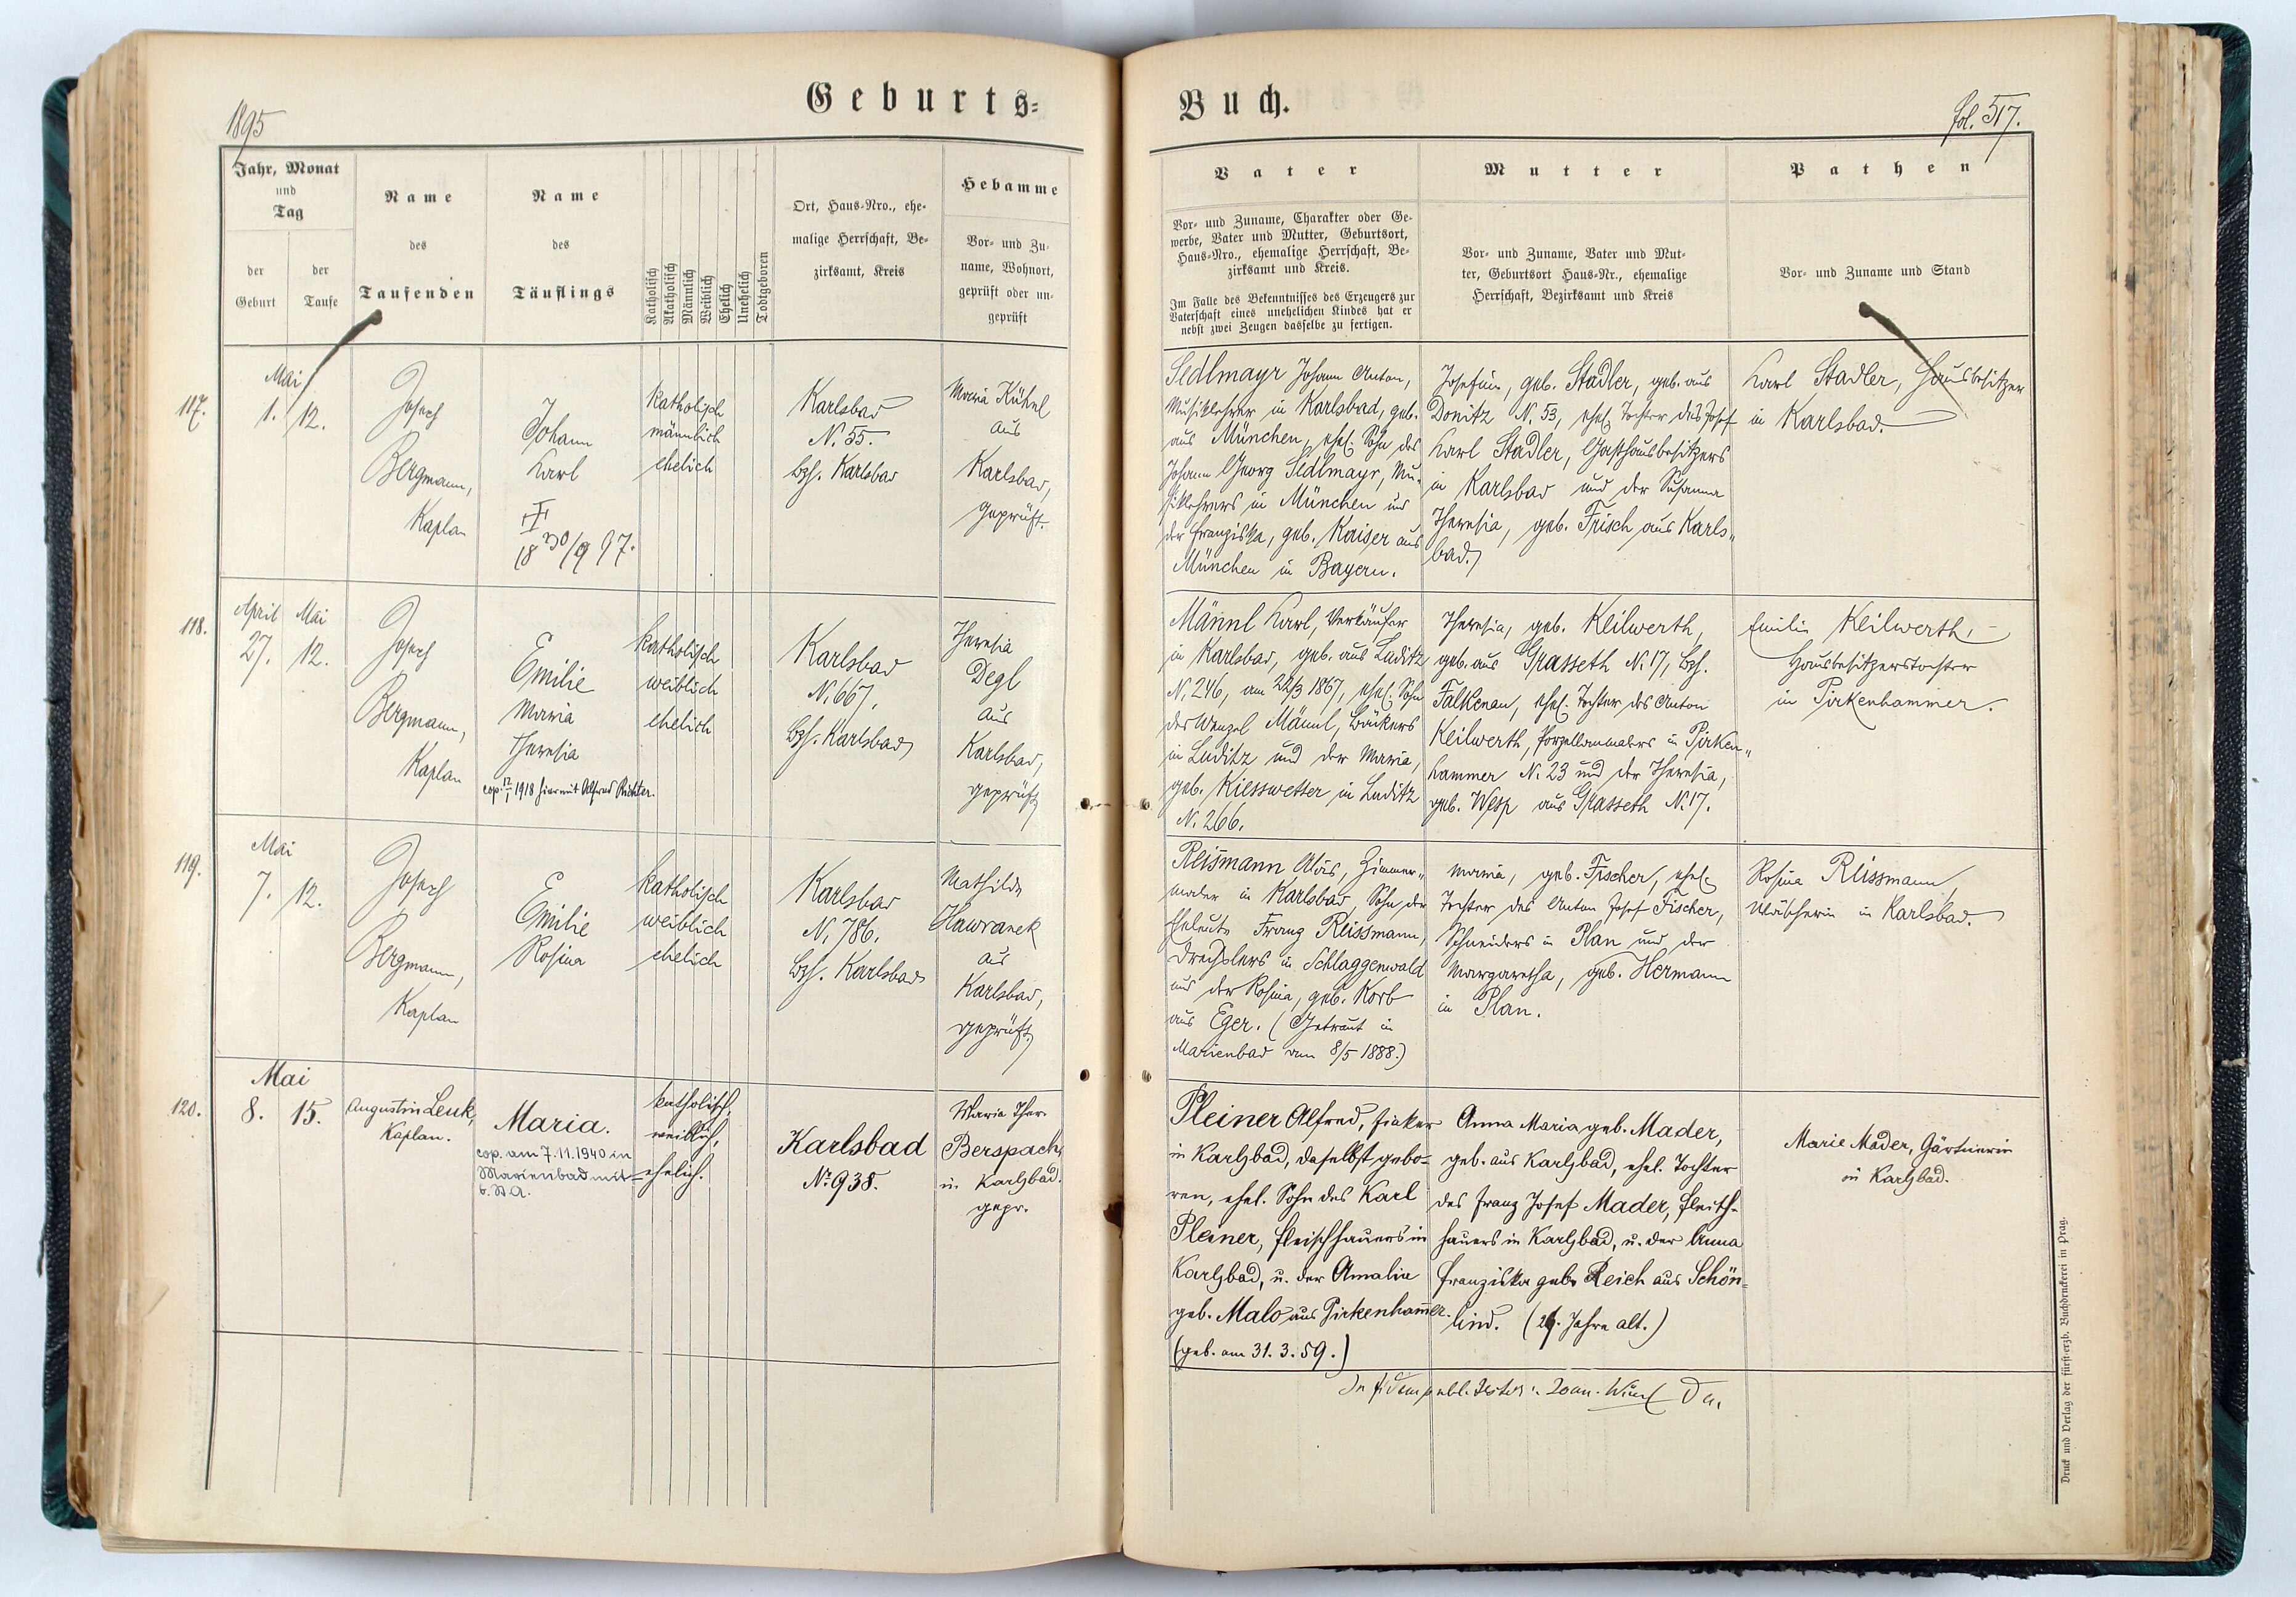 1895
Geburts=
Jahr, Monat
und
Tag
der
Geburt
der
Taufe
Name
des
Taufenden
Name
des
Täuflings
Katholisch
Akatholisch
Männlich
Weiblich
Ehelich
Unehelich
Todtgeboren
Ort, Haus-Nro., ehe-
malige Herrschaft, Be-
zirksamt, Kreis
Hebamme
Vor- und Zu-
name, Wohnort,
geprüft oder un-
geprüft
117.
Mai
1. 12.
Josef
Bergmann,
Kaplan
Johann
Karl
18 30/9 97.
katholisch
männlich
ehelich
Karlsbad
N. 55.
Bzh. Karlsbad
Maria Kühnl
aus
Karlsbad,
geprüft.
118.
April Mai
27. 12.
Josef
Bergmann,
Kaplan
Emilie
Maria
Theresia
cop. 12/1 1918 hier mit Alfred Richter.
katholisch
weiblich
ehelich
Karlsbad
N. 667.
Bzh. Karlsbad
Theresia
Degl
aus
Karlsbad,
geprüft
119.
Mai
7. 12.
Josef
Bergmann,
Kaplan
Emilie
Rosina
katholisch
weiblich
ehelich
Karlsbad
N. 786.
Bzh. Karlsbad
Mathilde
Hawranek
aus
Karlsbad,
geprüft
120.
Mai
8. 15.
Augustin Lenk,
Kaplan.
Maria.
cop. am 7.11.1940 in
Marienbad mit -
b. St. A.
katholisch,
weiblich,
ehelich.
Karlsbad
No 938.
Maria Ther.
Berspach,
in Karlsbad.
gepr.
Buch.
fol. 517.
Vater
Vor- und Zuname, Charakter oder Ge-
werbe, Vater und Mutter, Geburtsort,
Haus-Nro., ehemalige Herrschaft, Be-
zirksamt und Kreis.
Im Falle des Bekenntnisses des Erzeugers zur
Vaterschaft eines unehelichen Kindes hat er
nebst zwei Zeugen dasselbe zu fertigen.
Mutter
Vor- und Zuname, Vater und Mut-
ter, Geburtsort Haus-Nr., ehemalige
Herrschaft, Bezirksamt und Kreis
Pathen
Vor- und Zuname und Stand
Sedlmayr Johann Anton,
Musiklehrer in Karlsbad, geb.
aus München, ehel. Sohn des
Johann Georg Sedlmayr, Mu-
siklehrers in München und
der Franziska, geb. Kaiser aus
München in Bayern.
Josefine, geb. Stadler, geb. aus
Donitz N. 53, ehel. Tochter des Josef
Karl Stadler, Gasthausbesitzers
in Karlsbad und der Susanna
Theresia, geb. Frisch aus Karls„
bad.
Karl Stadler, Hausbesitzer
in Karlsbad.
Männl Karl, Verkäufer
in Karlsbad, geb. aus Luditz
N. 246, am 22/3 1867, ehel. Sohn
des Wenzel Männl, Bäckers
in Luditz und der Maria,
geb. Kiesswetter in Luditz
N. 266.
Theresia, geb. Keilwerth,
geb. aus Grasseth N. 17, Bzh.
Falkenau, ehel. Tochter des Anton
Keilwerth, Porzellanmalers in Pirken„
hammer N. 23 und der Theresia,
geb. Wesp aus Grasseth N. 17.
Emilie Keilwerth,
Hausbesitzerstochter
in Pirkenhammer.
Reismann Alois, Zimmer„
maler in Karlsbad, Sohn der
Eheleute Franz Reissmann,
Drechslers in Schlaggenwald
und der Rosina, geb. Korb
aus Eger. (Getraut in
Marienbad am 8/5 1888.)
Maria, geb. Fischer, ehel.
Tochter des Anton Josef Fischer,
Schneiders in Plan und der
Margaretha, geb. Hermann
in Plan.
Rosina Reissmann,
in Karlsbad.
Pleiner Alfred, Fiaker
in Karlsbad, daselbst gebo-
ren, ehel. Sohn des Karl
Pleiner, Fleischhauers in
Karlsbad, u. der Amalie
geb. Malo aus Pirkenhammer.
(geb. am 31. 3. 59.)
Anna Maria geb. Mader,
geb. aus Karlsbad, ehel. Tochter
des Franz Josef Mader, Fleisch-
hauers in Karlsbad, u. der Anna
Franziska geb. Reich aus Schön-
lind. (29. Jahre alt.)
Marie Mader, Gärtnerin
in Karlsbad.
In fidem publ.
Druck und Verlag der fürst-erzb. Buchdruckerei in Prag.